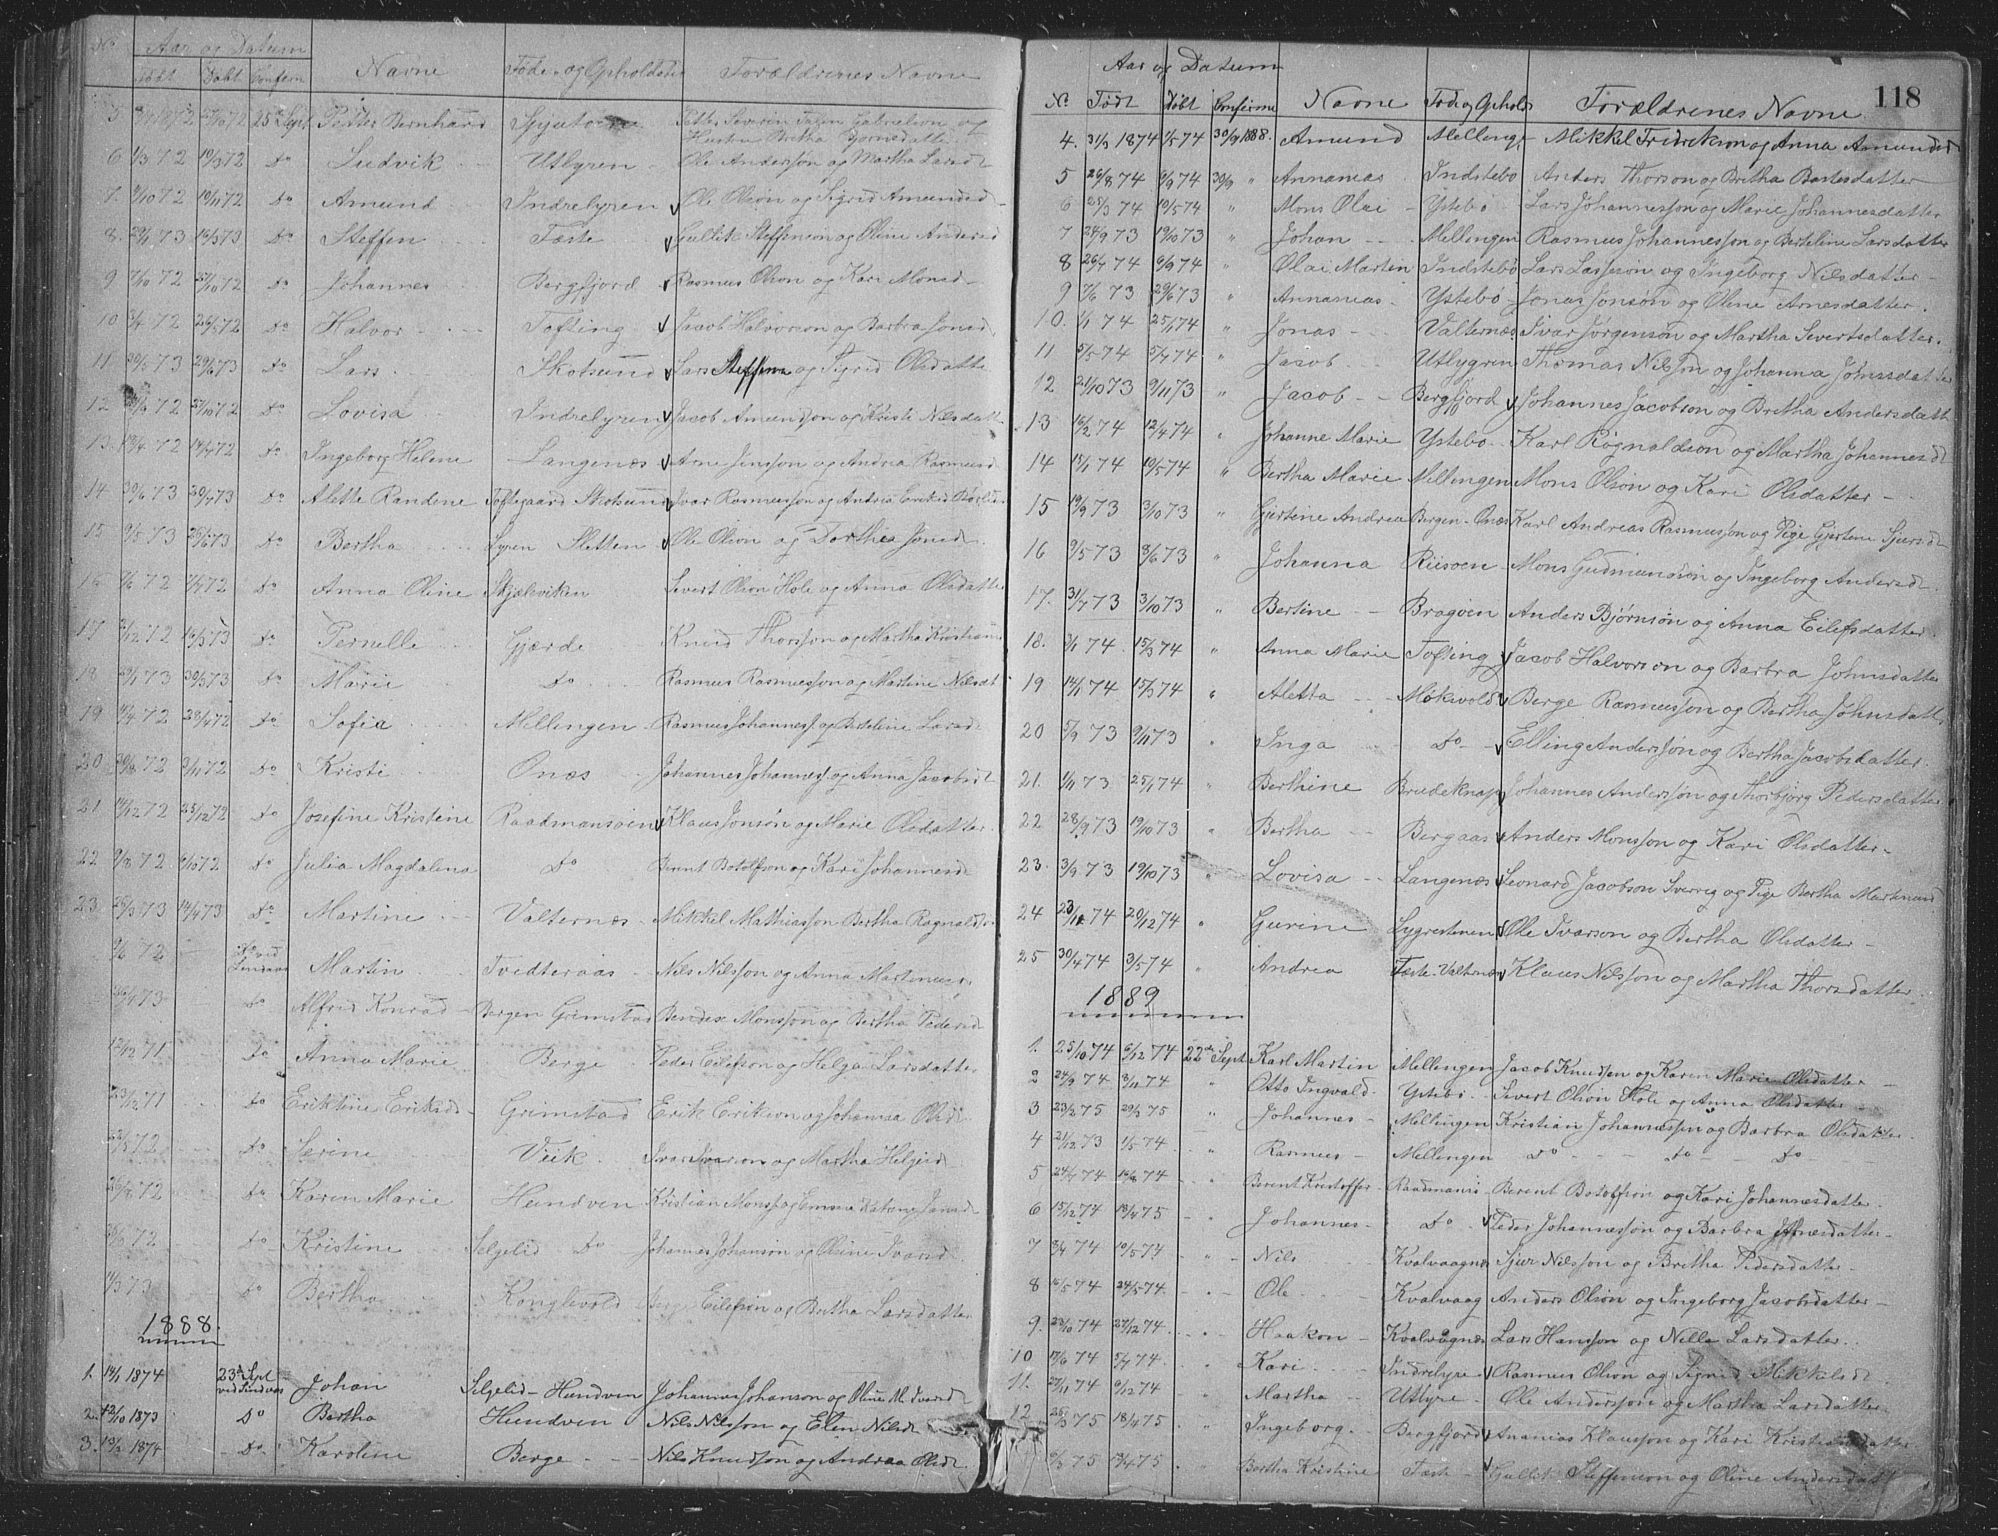 No Aar og Datum Navne Føde- og Opholdsted Forældrenes Navne
Født Døbt Confirm
5 72 27/10 72 25de Sept Petter Bernhard
Hustru Britha Bjornsdatter
6 1/3 72 10/3 72 Do Ludvik Utlyren Ole Andersson og Martha Larsd
7. 9/10 72 10/11 72 Do Amund Indrelyren Ole Olson og Sigrid Amundsd
8. 29/1 73 16/3 73 Do Steffen Fæste Gullik Steffenson og Oline Andersd
9 7/10 72 27/10 72 Do Johannes Bergfjord Rasmus Olson og Kari Monsd
10 3/4 72 26/5 72 Do Halvor Tofting Jacob Halvorson og Barbra Jonsd
11 30/5 73 29/6 73 Do Lars Skotsund Lars Steffens og Sigrid Olsdatte
12 72 27/10 72 Do Lovisa Indrelyren Jacob Amundson og Kristi Nilsdatt
13. 72 14/4 72 Do Ingeborg Helene Langenæs Arne Jensson og Andrea Rasmusd
14 30/6 73 20/7 73 Do Alette Randine Toftegaard Skotsund Ivar Rasmusson og Andrea Eriksd
15 9/5 73 25/6 73 Do Bertha Lyren Sletten Ole Olson og Dorthea Jonsd
16 72 7/7 72 Do Anna Oline Skjelsviken Severt Olson Hole og Anna Olsdatte
17 7/12 72 16/3 73 Do Pernelle Gjærde Knud Thorsson og Martha Kristians
18 73 30/3 73 Do Marie Do Rasmus Rasmusson og Martine Nilsdt
19 72 28/4 72 Do Sofia Millingen Rasmus Johannesf og Berteline Larsd
20 72 3/11 72 Do Kristi Onæs Johannes Johannesf og Anna Jacobsdt
21 14/12 72 25/12 72 Do Josefine Kristine Raadmansøen Klaus Jonsøn og Marie Olsdatter
22 9/8 72 6/10 72 Do Julia Magdalena Do Berent Botolfson og Kari Johannesd
23 73 14/4 73 Do Martine Valternæs Mikkel Mathiasson Bertha Ragnalds
9/6 72 Martin Tvedteraas Nils Nilsson og Anna Martinusd
73 Do Alfrid Konrad Bergen Grimstad Bendix Monsson og Bertha Pedersd
12/12 71 Do Anna Marie Berge Peder Eilefson og Helga Larsdatte
23/12 71 Do Eriktine Eriksd Grimstad Erik Erikson og Johanna Olsd
72 Do Serine Viik Ivar Ivarson og Martha Helgesd
72 Do Karen Marie Hundven Kristian Monsf og Emma Jansd
72 Do Kristine Selgelid Do Johannes Johanson og Oline Ivarsd
14/3 73 Do Bertha Konglevold Eilefson og Bertha Larsdatter
1888.
1. 14/1 1874 23de Sept ved Lindaas Johan Selgelid - Hundven Johannes Johanson og Oline M. Ivarsd
2. 12/10 1873 Do Bertha Hundven Nils Nilsson og Elen Nilsd
3. 13/2 1874 Do Karoline Berge Nils Knudsson og Andrea Olsd
118
Aar og Datum
No Født Døbt Confirme Navne Føde og Ophold Forældrenes Navne
4. 31/3 1874 74 30/9 1888. Amund Mellinge Mikkel Fridrikson og Anna Amundsd
5 26/8 74 6/9 74 30/9 " Annanias Indstebø Anders Thorson og Britha Bårtesdatter
6 25/3 74 10/5 74 " Mons Olai Ystebø Lars Johannesson og Marie Johannesdatter
7 24/9 73 19/10 73 " Johan Mellingen Rasmus Johannesson og Berteline Larsdatter
8 26/7 74 6/9 74 " Olai Martin Indstebø Lars Lasseson og Ingeborg Nilsdatter
9 7/6 73 29/6 73 " Annanias Ystebø Jonas Jonsøn og Oline Arnesdatter.
10. 1/1 74 25/1 74 " Jonas Valternæs Ivar Jørgensøn og Martha Severtsdatter.
11 5/5 74 5/7 74 " Jacob Utlygren Thomas Nilsson og Johanna Johnsdatter
12 21/10 73 9/11 73 " Jacob Bergfjord Johannes Jacobson og Britha Andersdatt
13 16/2 74 12/4 74 " Johanne Marie Ystebø Karl Rognaldson og Martha Johannesdt
14 74 10/5 74 " Bertha Marie Millingen Mons Olson og Kari Olsdatter
15 19/9 73 5/10 73 " Gjertine Andrea Bergen - Onæs Karl Andreas Rasmusson og Pige Gjertine Sjursd
16 9/5 73 8/6 73 " Johanna Riisøen Mons Gudmundson og Ingeborg Andersd
17. 31/7 73 5/10 73 " Bertine Bragøen Anders Bjørnsøn og Anna Eilefsdatter.
18. 74 15/3 74 " Anna Marie Tofting Jacob Halvorson og Barbra Johnsdatter
19 14/1 74 15/3 74 " Aletta Mökevold Berge Rasmusson og Bertha Johnsdatt
20 5/9 73 9/11 73 " Inga Do Elling Anderssøn og Bertha Jacobsdatter.
21. 1/11 73 25/1 74 " Berthine Brudeknap Johannes Anderssøn og Thorbjørg Pedersdatter
22 28/9 73 19/10 73 " Bertha Bergaas Anders Monsson og Kari Olsdatter
23. 3/9 73 19/10 73 " Lovisa Langenæs Leonard Jacobson Sverrig og Pige Bertha Martinusd
24 23/11 74 20/12 74 " Gurine Lygrestenen Ole Ivarson og Bertha Olsdatter
25 30/4 74 3/5 74 " Andrea Fæste-Valternæs Klaus Nilsson og Martha Thorsdatter
1889
1. 25/10 74 6/12 74 22de Sept Karl Martin Mellingen Jacob Knudsen og Karen Marie Olsdatter
2 24/9 74 8/11 74 " Otto Ingvald Ystebø Sivert Olson Hole og Anna Olsdatter
3 23/2 75 29/3 75 " Johannes Mellingen Kristian Johannesson og Barbra Olsdatter.
4 21/12 73 1/5 74 " Rasmus Mellingen Do Do Do
5 24/7 74 16/8 74 " Berent Kristoffer Raadmans Berent Botolfson og Kari Johannesdatte.
6 15/12 74 18/4 75 " Johannes Do Peder Johannesson og Barbra Johnesdatter
7 3/4 74 10/5 74 " Nils Kvalvaagnes Sjur Nilsson og Britha Pedersdatter
8 16/5 74 24/5 74 " Ole Kvalvaag Anders Olson og Ingeborg Jacobsdatter
9. 23/10 74 27/12 74 " Haakon Kvalvagnes Lars Hansson og Nille Larsdatter.
10 17/6 74 5/7 74 " Kari Indrelyre Rasmus Olson og Sigrid Mikkelsd
11. 27/11 74 9/12 74 " Martha Utlyre Ole Andersson og Martha Larsdatter
12 75 18/4 75 " Ingeborg Bergfjord Ananias Klausson og Kari Kristiansdatter
75 75 " Bertha Kristine Fæste Gullik Steffenson og Oline Andersdatt